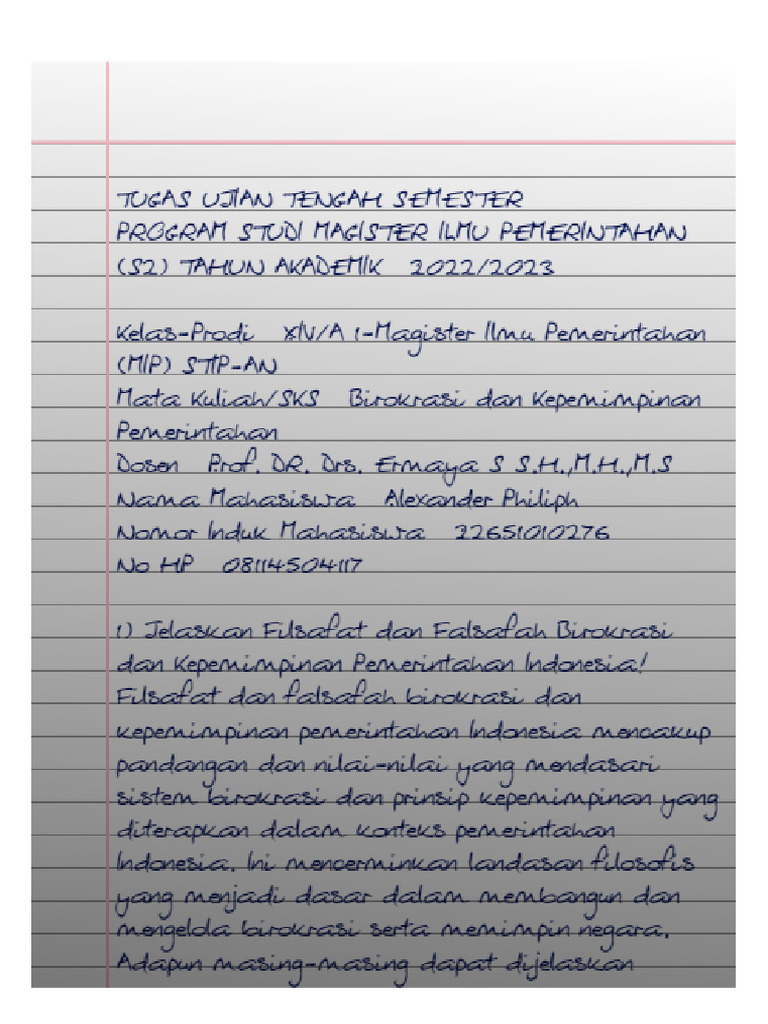 TUGAS UJIAN TENGAH SEMESTER
PROGRAM STUDI MAGISTER ILMU PEMERINTAHAN
(S2) TAHUN AKADEMIK 2022/2023
Kelas-Prodi XIV/A 1-Magister Ilmu Pemerintahan
(MIP) STIP-AN
Mata Kuliah/SKS Birokrasi dan Kepemimpinan
Pemerintahan
Dosen Prof. DR. Drs. Ermaya S S.H.,M.H.,M.S
Nama Mahasiswa Alexander Philiph
Nomor Induk Mahasiswa 32651010276
No HP 08114504117
1) Jelaskan Filsafat dan Falsafah Birokrasi
dan Kepemimpinan Pemerintahan Indonesia!
Filsafat dan falsafah birokrasi dan
kepemimpinan pemerintahan Indonesia mencakup
pandangan dan nilai-nilai yang mendasari
sistem birokrasi dan prinsip kepemimpinan yang
diterapkan dalam konteks pemerintahan
Indonesia. Ini mencerminkan landasan filosofis
yang menjadi dasar dalam membangun dan
mengelola birokrasi serta memimpin negara.
Adapun masing-masing dapat dijelaskan